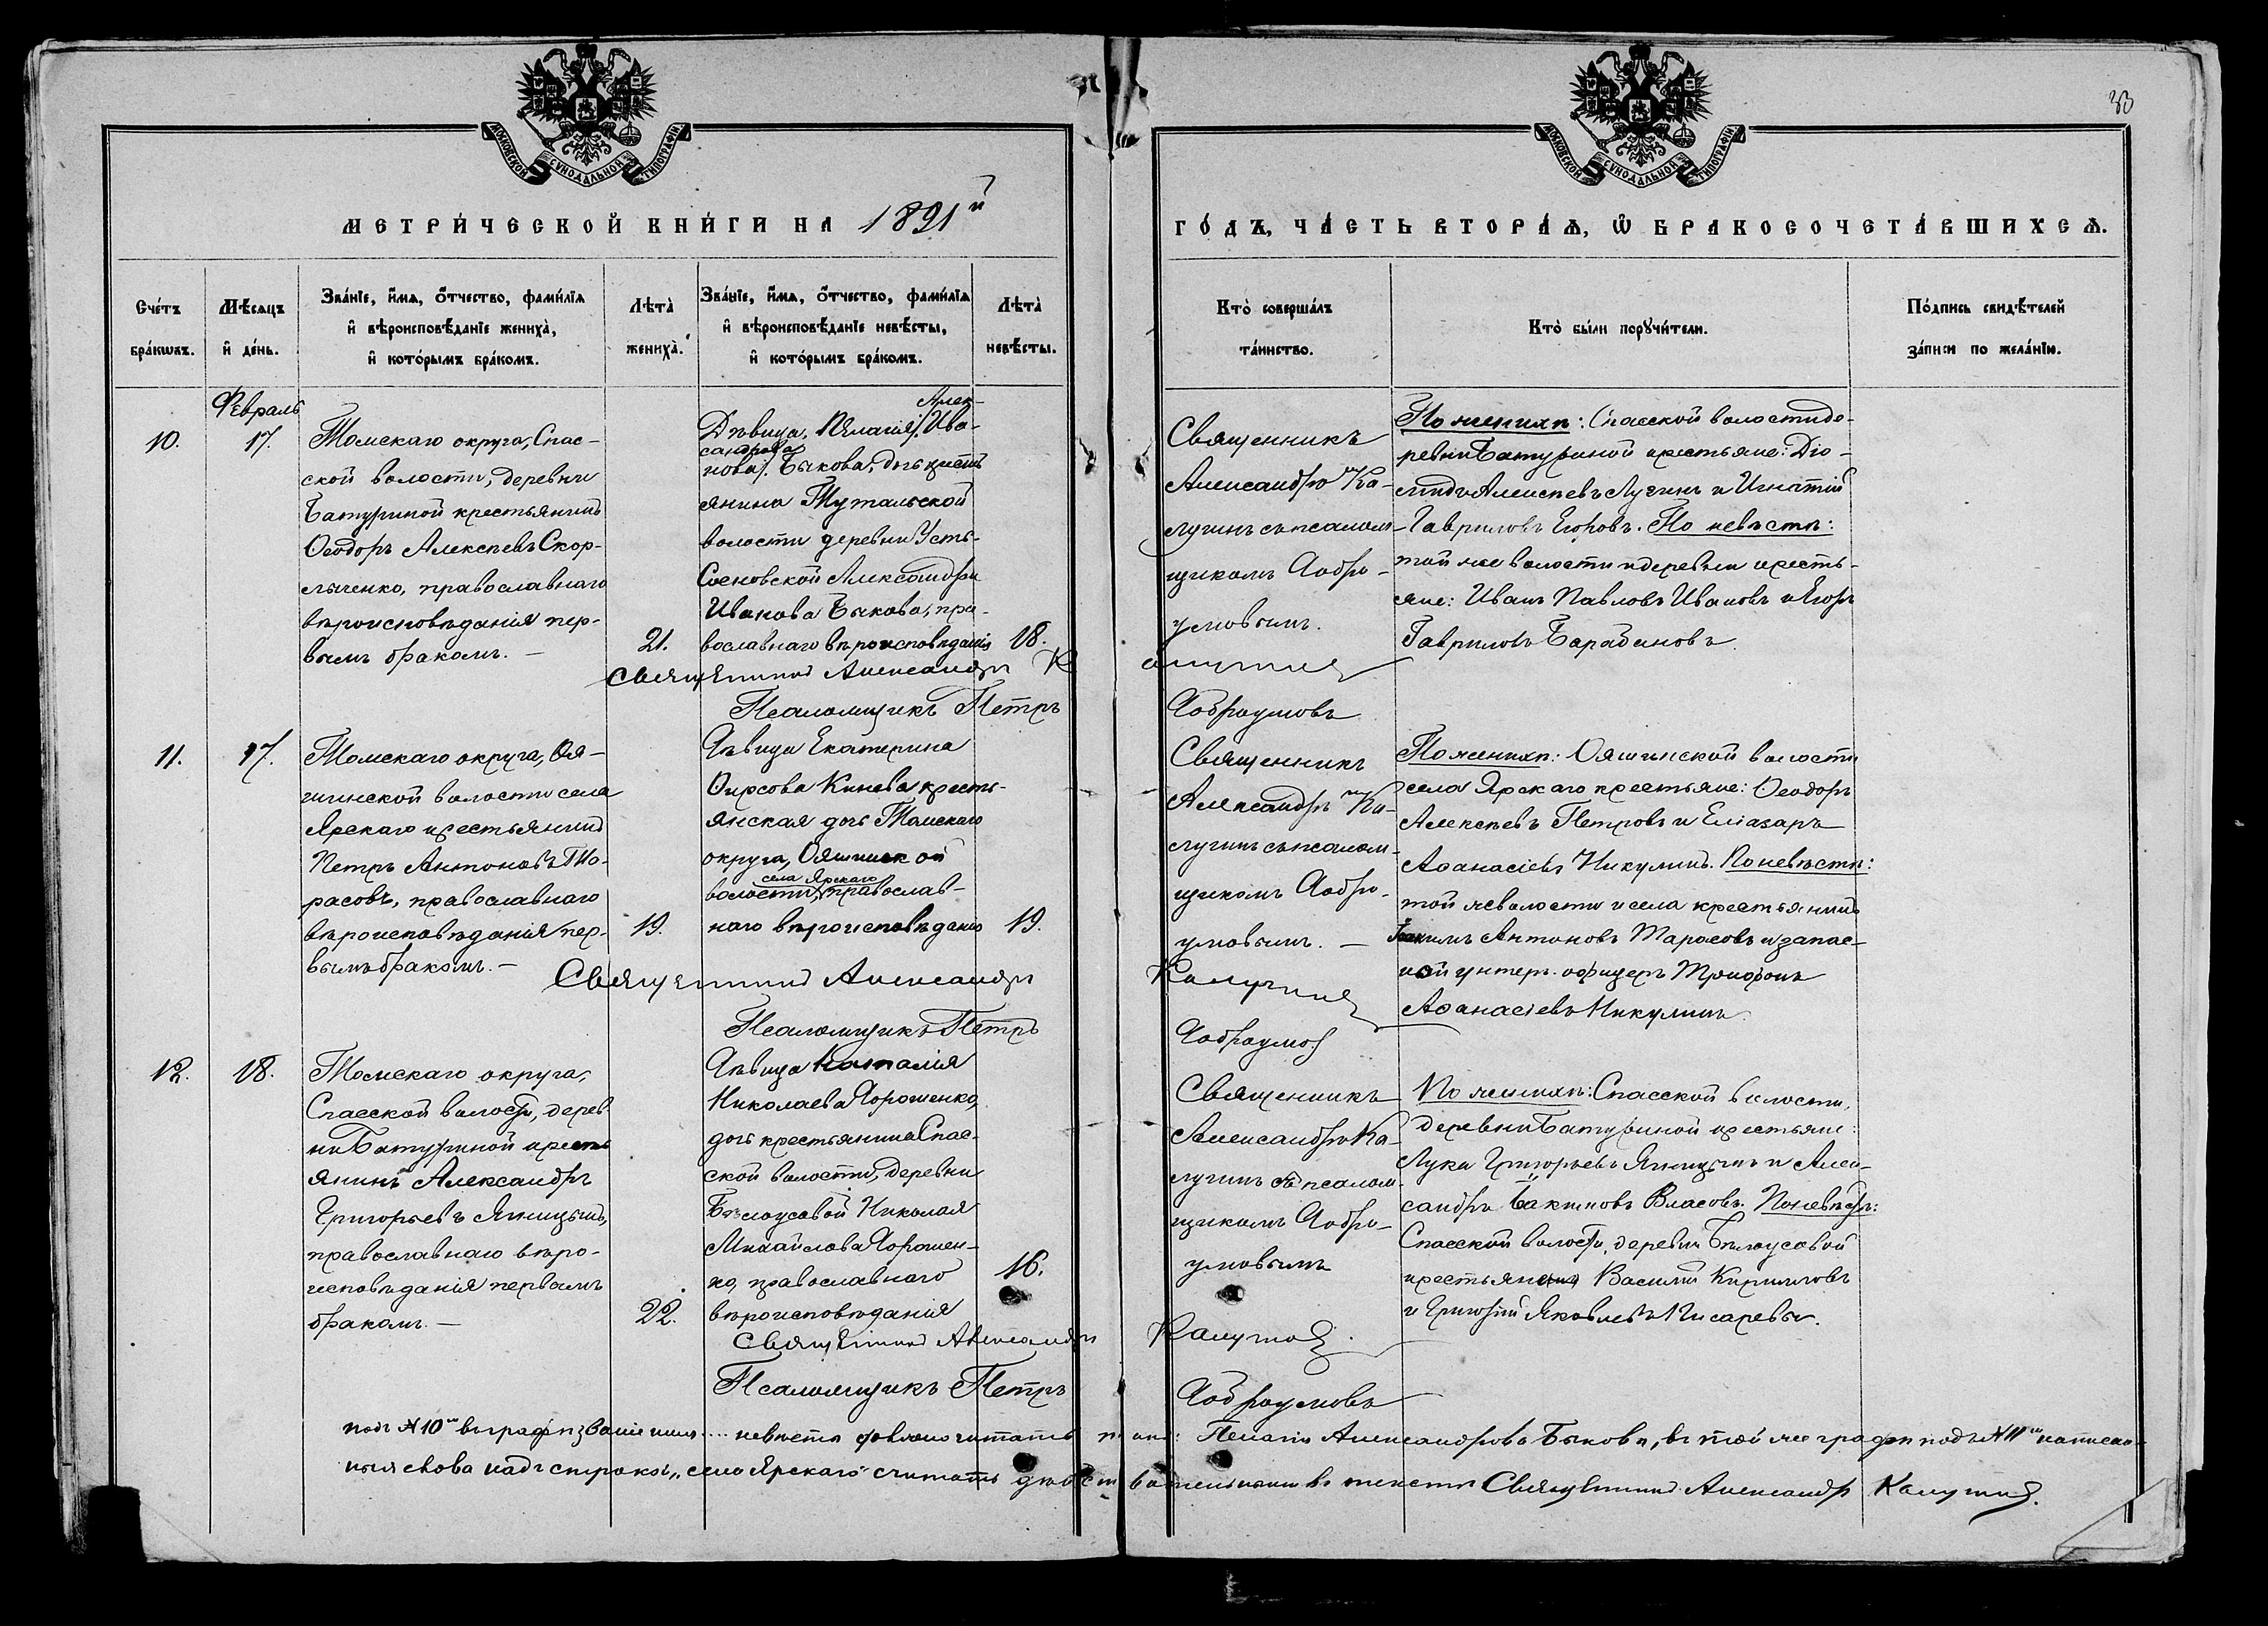 33
МОСКОВСКОЙ СУНОДАЛЬНОЙ ТИПОГРАФІИ
МОСКОВСКОЙ СУНОДАЛЬНОЙ ТИПОГРАФІИ
МЕТРИ́ЧЕСКОЙ КНИ́ГИ НА 1891й
ГО́ДЪ, ЧА́СТЬ ВТОРА́Ѧ, Ѽ БРАКОСОЧЕТА́ВШИХСѦ.
Сче́тъ
бра́кѡвъ.
Мѣ́сѧцъ
и҆ де́нь.
Зва́нїе, и҆́мѧ, ѻ҆́тчество, фами́лїѧ
и҆ вѣроисповѣ́данїе жениха̀,
и҆ кото́рымъ бра́комъ.
Лѣта̀
жениха̀.
Зва́нїе, и҆́мѧ, ѻ҆́тчество, фами́лїѧ
и҆ вѣроисповѣ́данїе невѣ́сты,
и҆ кото́рымъ бра́комъ.
Лѣта̀
невѣ́сты.
Кто̀ соверша́лъ
та́инство.
Кто̀ бы́ли порꙋчи́тели.
По́дпись свидѣ́телей
за́писи по жела́нїю.
Февраль
10.
17.
Томскаго округа, Спас-
ской волости, деревни
Батуриной крестьянинъ
Ѳеодоръ Алексѣевъ Скор-
лыченко, православнаго
вѣроисповѣданія пер-
вымъ бракомъ. —
21.
Алек-
Дѣвица, Пелагія /. Ива-
сандрова
нова /. Быкова, дочь крестъ
янина Тутальской
волости деревни Усть-
Сосновской Александра
Иванова Быкова, пра-
вославнаго вѣроисповѣданія
18.
Священникъ
Александръ Ка-
лугинъ съ псалом-
щикомъ Добро-
умовымъ.
По женихѣ: Спасской волости де-
ревни Батуриной крестьяне: Діо-
мидъ Алексѣевъ Лугинъ и Игнатій
Гавриловъ Егоровъ. По невѣстѣ:
той же волости и деревни кресть-
яне: Иванъ Павловъ Ивановъ и Егоръ
Гавриловъ Барабановъ.
Священникъ Александръ Калугинъ
Псаломщикъ Петръ Доброумовъ
11.
17.
Томскаго округа, Оя-
шинской волости села
Ярскаго крестьянинъ
Петръ Антоновъ Та-
расовъ, православнаго
вѣроисповѣданія пер-
вымъ бракомъ. —
19.
Дѣвица Екатерина
Ѳирсова Кинева кресть-
янская дочь Томскаго
округа, Ояшинской
села Ярскаго
волости, православ-
наго вѣроисповѣданія
19.
Священникъ
Александръ Ка-
лугинъ съ псалом-
щикомъ Добро-
умовымъ. —
По женихѣ: Ояшинской волости
села Ярскаго крестьяне: Ѳеодоръ
Алексѣевъ Петровъ и Еліазаръ
Аѳанасіевъ Никулинъ. По невѣстѣ:
той же волости и села крестьянинъ
Іоакимъ Антоновъ Тарасовъ и запас-
ной унтеръ-офицеръ Трифонъ
Аѳанасіевъ Никулинъ.
Священникъ Александръ Калугинъ
Псаломщикъ Петръ Доброумовъ
12.
18.
Томскаго округа,
Спасской волости, дерев-
ни Батуриной кресть
янинъ Александръ
Григорьевъ Яницынъ,
православнаго вѣро-
исповѣданія первымъ
бракомъ. —
22.
Дѣвица Наталія
Николаева Дорошенко,
дочь крестьянина Спас-
ской волости, деревни
Бѣлоусовой Николая
Михайлова Дорошен-
ко, православнаго
вѣроисповѣданія
16.
Священникъ
Александръ Ка-
лугинъ съ псалом-
щикомъ Добро-
умовымъ
По женихѣ: Спасской волости,
деревни Батуриной крестьяне:
Лука Григорьевъ Яницынъ и Алек-
сандръ Власовъ. По невѣстѣ:
Спасской волости, деревни Бѣлоусовой
крестьяне Василій Кирилловъ
и Григорій Яковлевъ Писаревы.
Священникъ Александръ Калугинъ.
Псаломщикъ Петръ Доброумовъ
подъ №10мъ въ графѣ званіе имя.... невѣсты должно читать такъ: Пелагія Александрова Быкова, въ той же графѣ подъ №11мъ написан-
ныя слова надъ строкой „село Ярскаго" считать дѣйствительными въ текстѣ Священникъ Александръ Калугинъ.